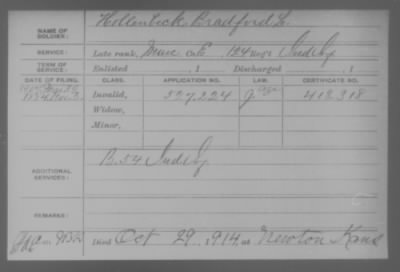 NAME OF SOLDIER: Hollenbeck, Bradford L.
SERVICE: Late rank, Musc Co K, 124 Regt Ind Inf
TERM OF SERVICE: Enlisted , 1 Discharged , 1
DATE OF FILING. CLASS. APPLICATION NO. LAW. CERTIFICATE NO.
1884 Invalid, 527,224 G 412,318
Widow,
Minor,
ADDITIONAL SERVICES: B. 54 Ind Inf
REMARKS:
Died Oct 29, 1914, at Newton Kans